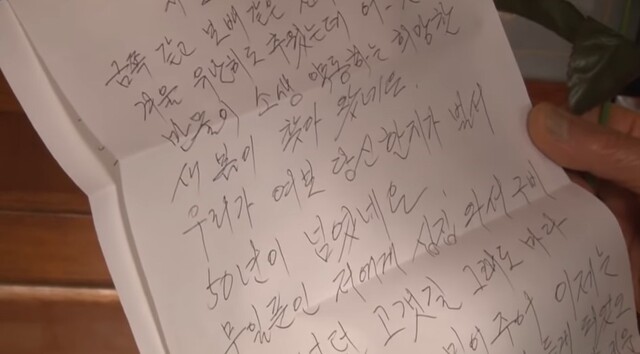 금쪽 같고 보배같은
겨울 유난히도 추웠는데
만물이 소생 약동하는 희망찬
새 봄이 찾아 왔네요.
우리가 여보 당신 한지가 벌써
50년이 넘었네요.
무일푼인 저에게 시집 와서 구비
고갯길 그래도 바라
믿어주어 이제는